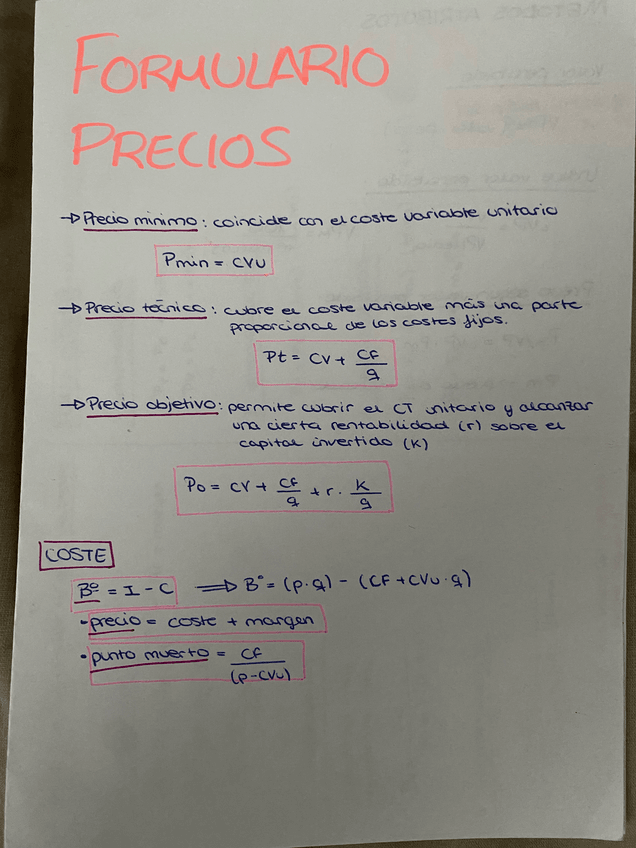 FORMULARIO
PRECIOS
→ Precio mínimo: coincide con el coste variable unitario
Pmin = CVU
→ Precio técnico: cubre el coste variable más una parte
proporcional de los costes fijos.
Pt = CV + CF/q
→ Precio objetivo: permite cubrir el CT unitario y alcanzar
una cierta rentabilidad (r) sobre el
capital invertido (K)
Po = CV + CF/q + r · K/q
COSTE
Bº = I - C ⟹ Bº = (p·q) - (CF + CVu·q)
· precio = coste + margen
· punto muerto = CF/(p-CVu)